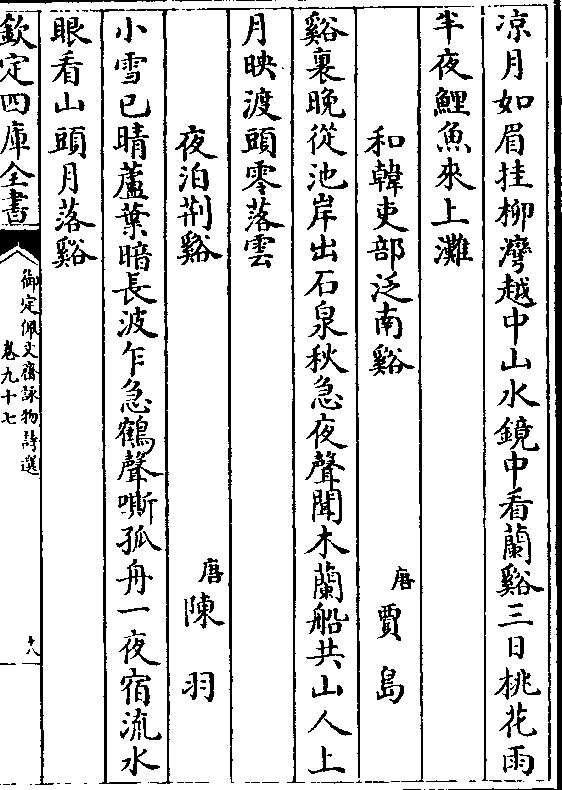 凉月如眉挂柳灣越中山水鏡中看蘭谿三日桃花雨
半夜鯉魚來上灘
和韓吏部泛南谿
唐賈島
谿裏晚從池岸出石泉秋急夜聲聞木蘭船共山人上
月映渡頭零落雲
夜泊荆谿
唐陳羽
小雪已晴蘆葉暗長波乍急鶴聲嘶孤舟一夜宿流水
眼看山頭月落谿
欽定四庫全書
御定佩文齋詠物詩選
卷九十七
十八